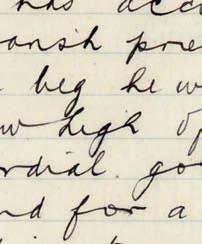 has acc
arish prie
beg he w
w high op
rdial go
nd for a